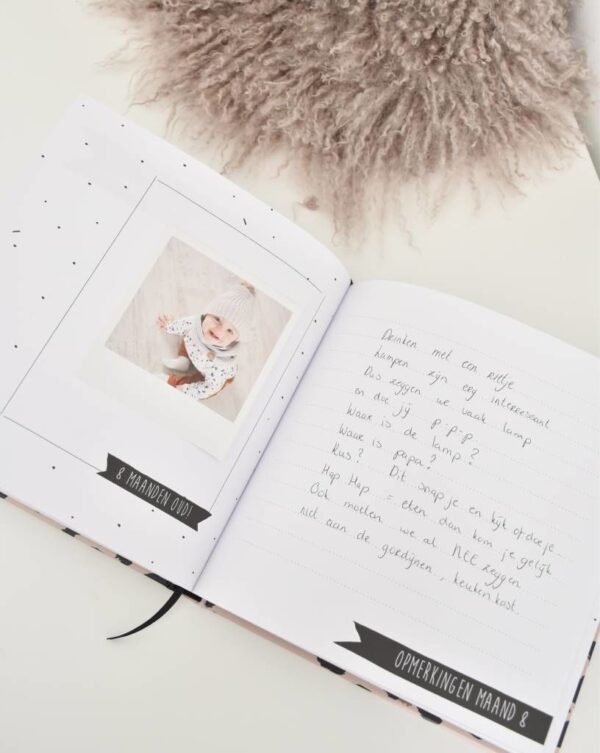 8 MAANDEN OUD!
Drinken met een rietje
Lampen zijn erg interessant
Dus zeggen we vaak lamp
en doe jij p.p.p.
Waar is de lamp?
Waar is papa?
Kus? Dit snap je en kijk of doe je
Hap Hap = eten dan kom je gelijk
Ook moeten we al NEE zeggen
niet aan de gordijnen, keukenkast
OPMERKINGEN MAAND 8